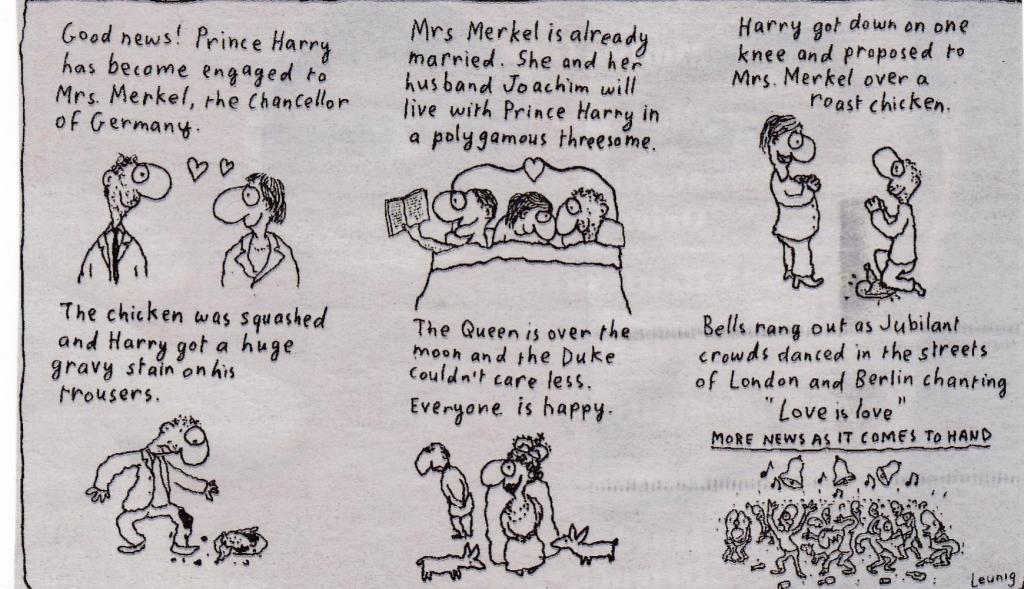 Good news! Prince Harry
has become engaged to
Mrs. Merkel, the Chancellor
of Germany.
Mrs Merkel is already
married. She and her
husband Joachim will
live with Prince Harry in
a polygamous threesome.
Harry got down on one
knee and proposed to
Mrs. Merkel over a
roast chicken.
The chicken was squashed
and Harry got a huge
gravy stain on his
trousers.
The Queen is over the
moon and the Duke
couldn't care less.
Everyone is happy.
Bells rang out as Jubilant
crowds danced in the streets
of London and Berlin chanting
"Love is love"
MORE NEWS AS IT COMES TO HAND
Leunig